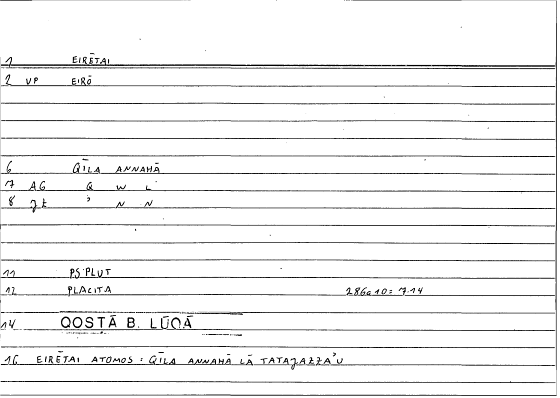 1 EIRĒTAI
2 VP EIRŌ
6 QĪLA ANNAHĀ
7 AG Q W L
8 ʾ N N
11 PS.PLUT
12 PLACITA 286a10=7.14
14 QOSṬĀ B. LŪQĀ
16 EIRĒTAI ATOMOS: QĪLA ANNAHĀ LĀ